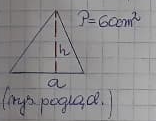 P=60cm²
h
a
(rys. pogląd.)